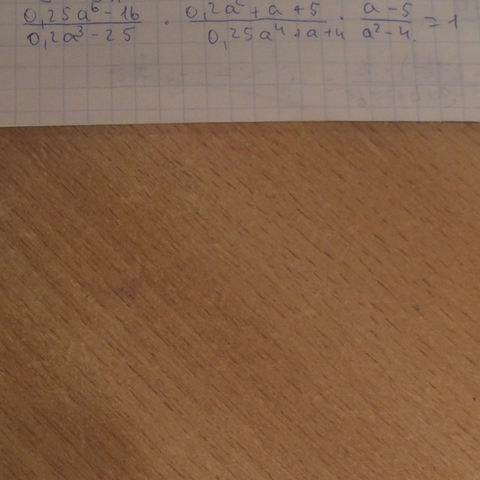 (0,25a⁶ - 16)/(0,2a³ - 25) · (0,2a² + a + 5)/(0,25a⁴ + a + 4) · (a - 5)/(a² - 4) = 1